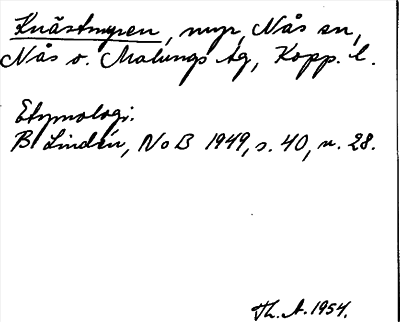 Knästmyren, myr, Nås sn,
Nås o. Malungs tg, Kopp. l.
Etymologi.
B Lindén, NoB 1949, s. 40, n. 28.
Th. A. 1954.